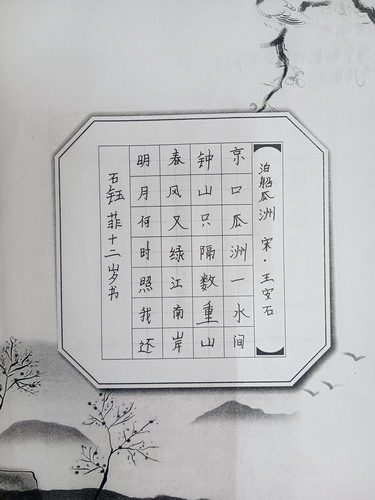 泊船瓜洲 宋·王安石
京口瓜洲一水间
钟山只隔数重山
春风又绿江南岸
明月何时照我还
石钰菲十二岁书